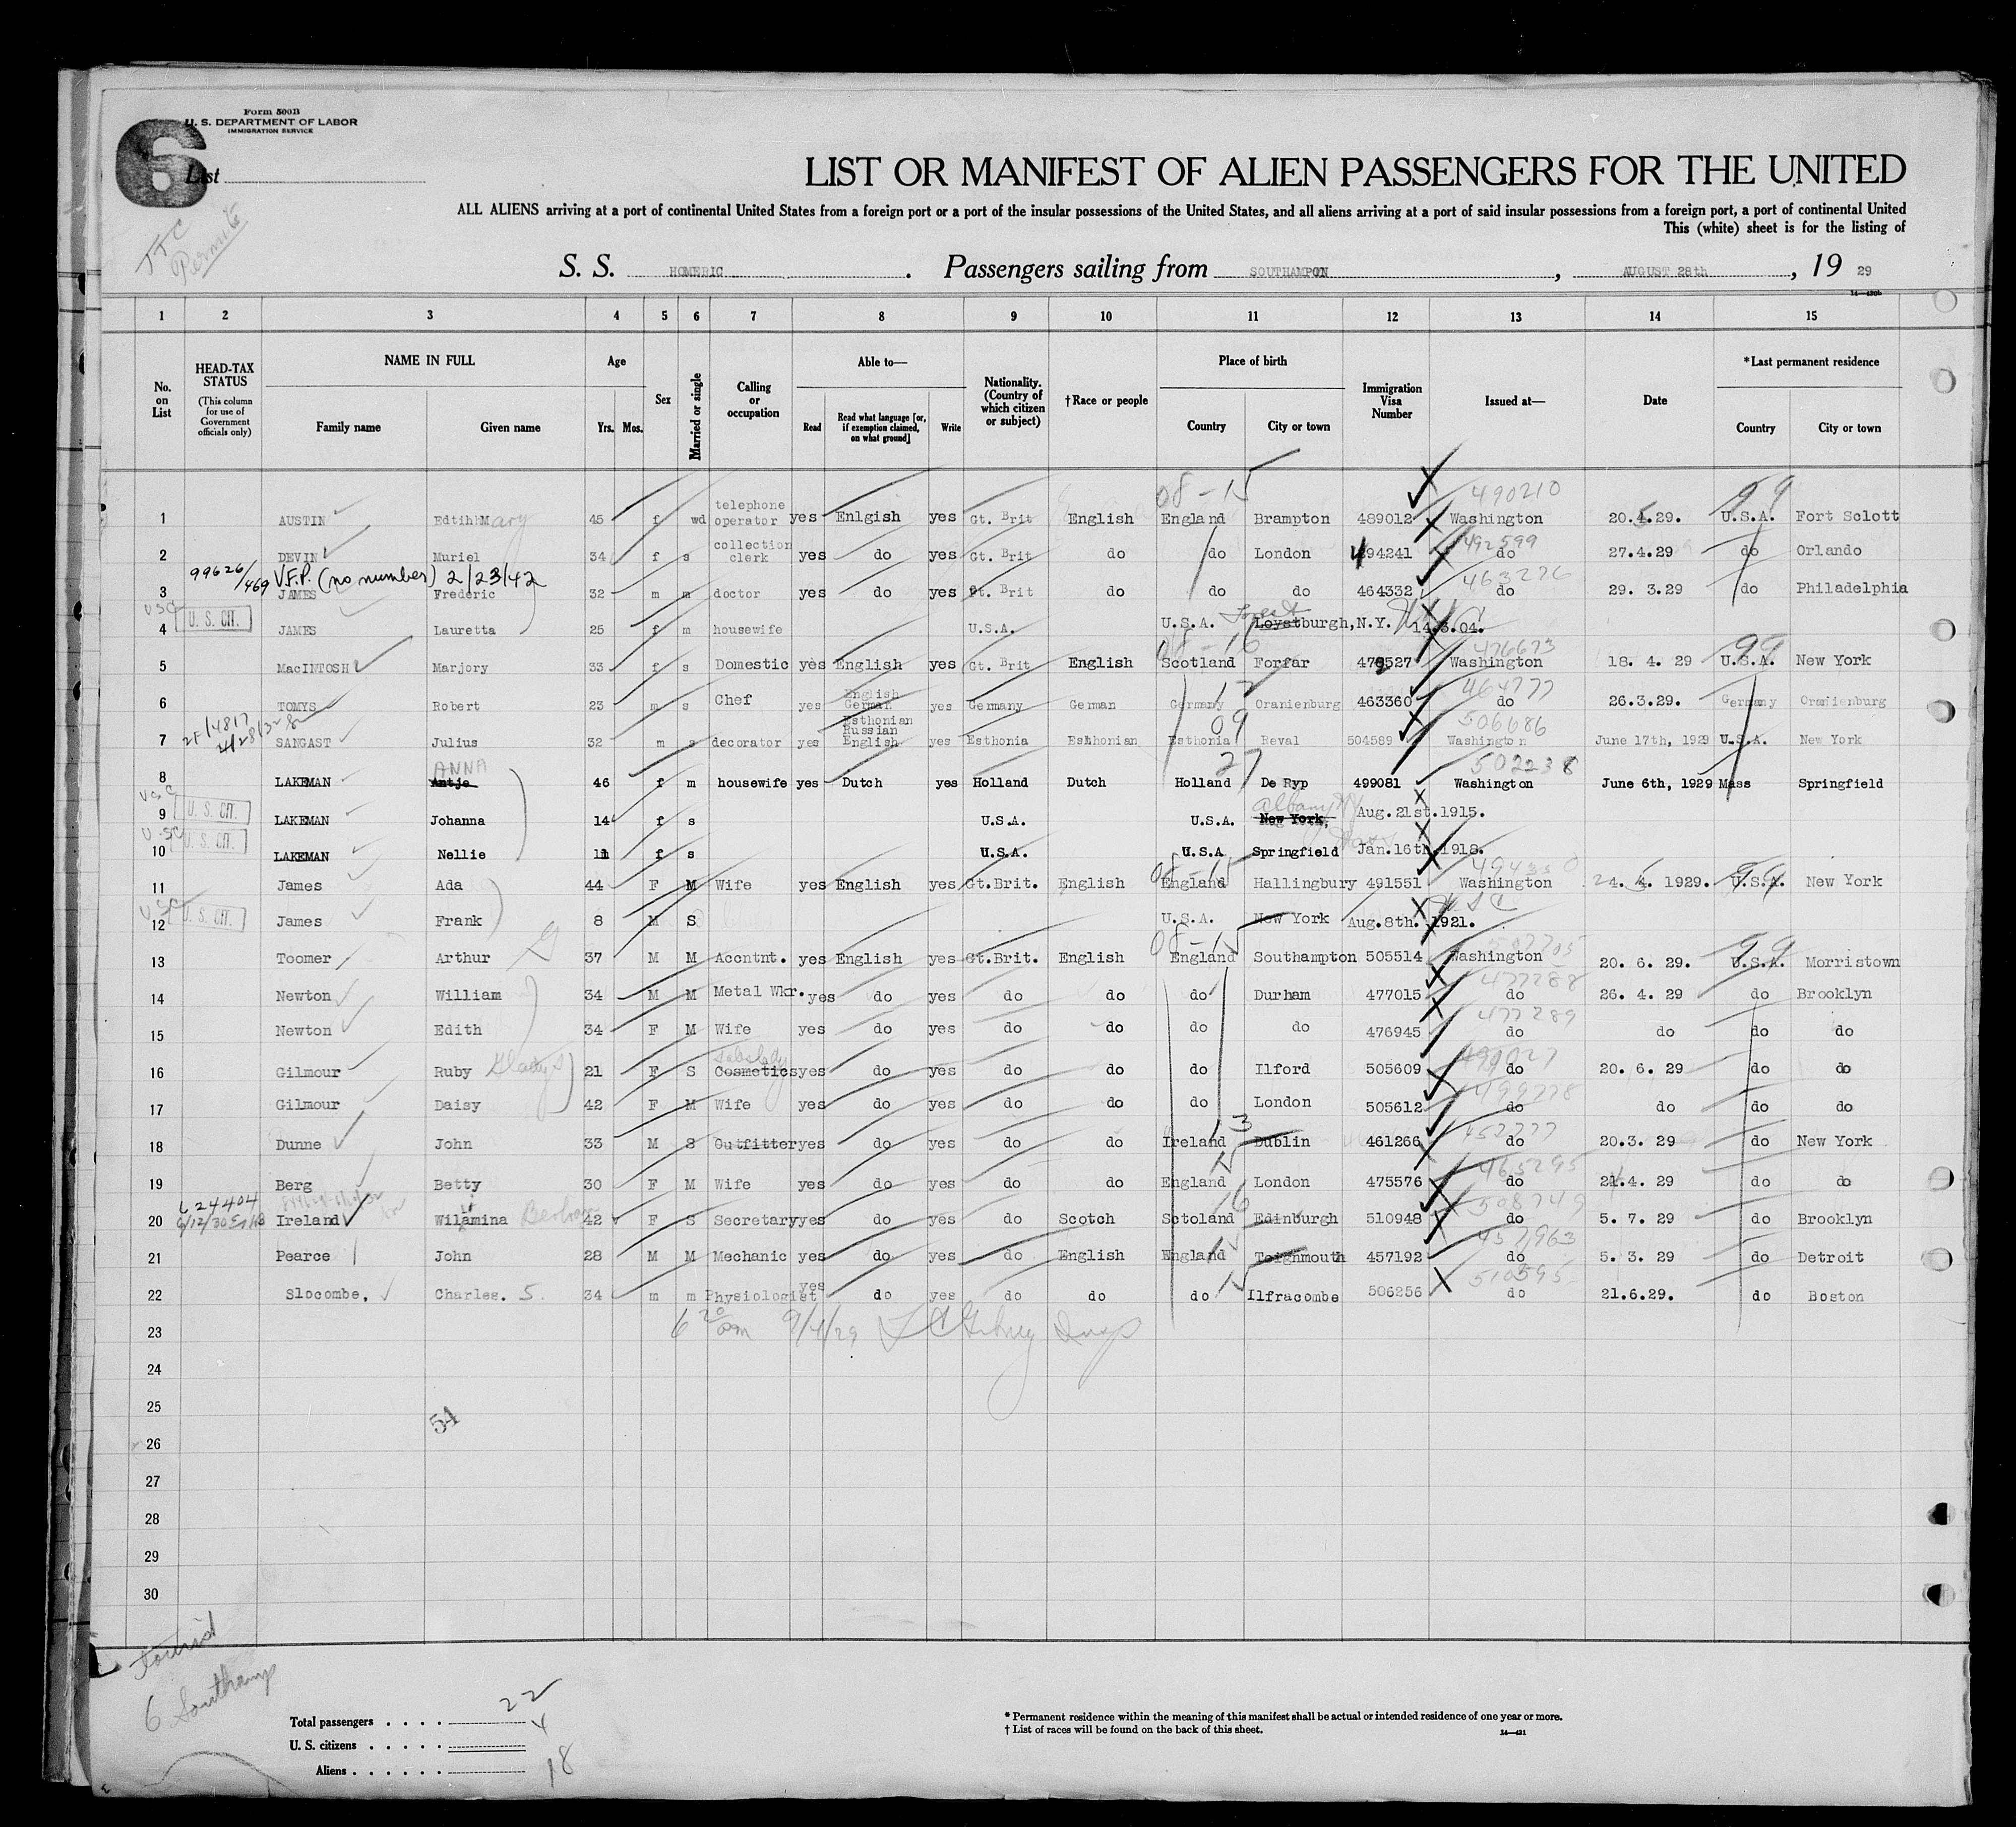 Form 500B
U. S. DEPARTMENT OF LABOR
IMMIGRATION SERVICE
6
List
Permit
LIST OR MANIFEST OF ALIEN PASSENGERS FOR THE UNITED
ALL ALIENS arriving at a port of continental United States from a foreign port or a port of the insular possessions of the United States, and all aliens arriving at a port of said insular possessions from a foreign port, a port of continental United
This (white) sheet is for the listing of
S. S. HOMERIC. Passengers sailing from SOUTHAMPON, AUGUST 28th, 19 29
1 2 3 4 5 6 7 8 9 10 11 12 13 14 15
No. on List
HEAD-TAX STATUS (This column for use of Government officials only)
NAME IN FULL Family name Given name
Age Yrs. Mos.
Sex
Married or single
Calling or occupation
Able to— Read Read what language [or, if exemption claimed, on what ground] Write
Nationality. (Country of which citizen or subject)
†Race or people
Place of birth Country City or town
Immigration Visa Number
Issued at—
Date
*Last permanent residence Country City or town
08-15 490210 99
1 AUSTIN Edtihh Mary 45 f wd telephone operator yes Enlgish yes Gt. Brit English England Brampton 489012 Washington 20.4.29. U.S.A. Fort Sclott
492599
2 DEVIN Muriel 34 f s collection clerk yes do yes Gt. Brit do do London 494241 do 27.4.29 do Orlando
99626/469 V.F.P. (no number) 2/23/42 463276
3 JAMES Frederic 32 m m doctor yes do yes Gt. Brit do do do 464332 do 29. 3.29 do Philadelphia
USC U. S. CIT.
4 JAMES Lauretta 25 f m housewife U.S.A. U.S.A. Loystburgh, N.Y. 14.3.04.
08-16 476673 99
5 MacINTOSH Marjory 33 f s Domestic yes English yes Gt. Brit English Scotland Forfar 476527 Washington 18. 4. 29 U.S.A. New York
12 464777
6 TOMYS Robert 23 m s Chef yes English German yes Germany German Germany Oranienburg 463360 do 26.3.29. Germany Oranienburg
2F/4817 4/28/32 09 506686
7 SANGAST Julius 32 m s decorator yes Esthonian Russian English yes Esthonia Eshhonian Esthonia Reval 504589 Washington June 17th, 1929 U.S.A. New York
ANNA 27 502238
8 LAKEMAN Antje 46 f m housewife yes Dutch yes Holland Dutch Holland De Ryp 499081 Washington June 6th, 1929 Mass Springfield
USC U. S. CIT. Albany NY
9 LAKEMAN Johanna 14 f s U.S.A. U.S.A. New York, Aug. 21st.1915.
USC U. S. CIT.
10 LAKEMAN Nellie 11 f s U.S.A. U.S.A Springfield Jan.16th.1918.
08-15 494350 99
11 James Ada 44 F M Wife yes English yes Gt.Brit. English England Hallingbury 491551 Washington 24. 4. 1929. U.S.A. New York
USC U. S. CIT. USC
12 James Frank 8 M S U.S.A. New York Aug.8th. 1921.
08-15 507705 99
13 Toomer Arthur 37 M M Accntnt. yes English yes Gt.Brit. English England Southampton 505514 Washington 20. 6. 29. U.S.A. Morristown
477288
14 Newton William 34 M M Metal Wkr. yes do yes do do do Durham 477015 do 26. 4. 29 do Brooklyn
477289
15 Newton Edith 34 F M Wife yes do yes do do do do 476945 do do do do
16 Gilmour Ruby Gladys 21 F S Cosmetics Saleslady yes do yes do do do Ilford 505609 do 20. 6. 29 do do
499778
17 Gilmour Daisy 42 F M Wife yes do yes do do do London 505612 do do do do
13 452777
18 Dunne John 33 M S Outfitter yes do yes do do Ireland Dublin 461266 do 20.3. 29 do New York
15 465295
19 Berg Betty 30 F M Wife yes do yes do do England London 475576 do 21.4. 29 do do
624404 16 508749
20 Ireland Wilamina 42 F S Secretary yes do yes do Scotch Sctoland Edinburgh 510948 do 5. 7. 29 do Brooklyn
15 457963
21 Pearce John 28 M M Mechanic yes do yes do English England Teighmouth 457192 do 5. 3. 29 do Detroit
15 510595
22 Slocombe, Charles. S. 34 m m Physiologist yes do yes do do do Ilfracombe 506256 do 21.6.29. do Boston
23 6 20 pm 9/4/29
24
25 54
26
27
28
29
30
Tourist
6 Southamp
Total passengers 22
U. S. citizens 4
Aliens 18
* Permanent residence within the meaning of this manifest shall be actual or intended residence of one year or more.
† List of races will be found on the back of this sheet. 14—421